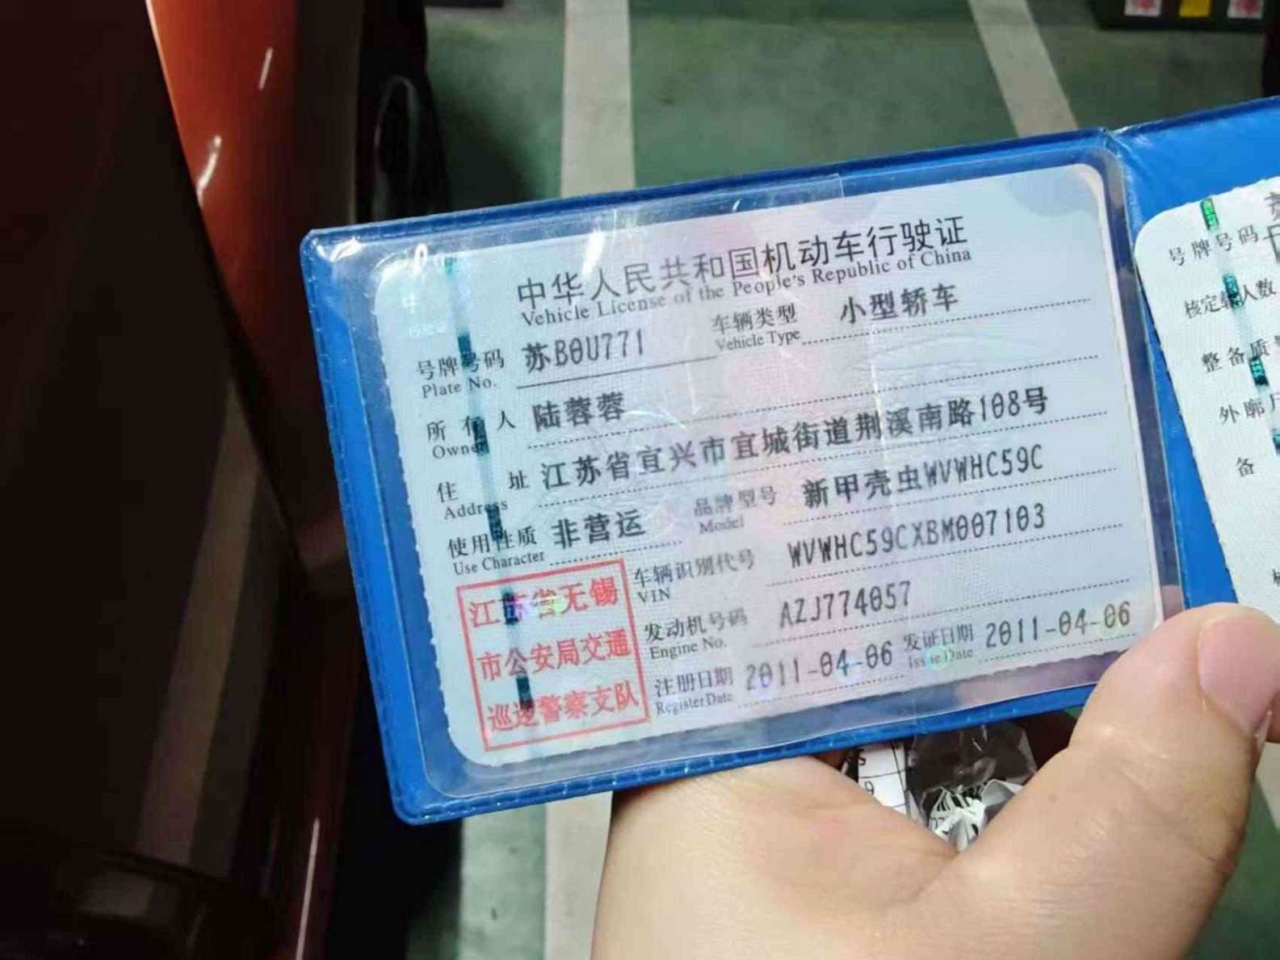 中华人民共和国机动车行驶证
Vehicle License of the People's Republic of China
号牌号码 苏B0U771 车辆类型 小型轿车
Plate No. Vehicle Type
所有人 陆蓉蓉
Owner
住址 江苏省宜兴市宜城街道荆溪南路108号
Address
使用性质 非营运 品牌型号 新甲壳虫WVWHC59C
Use Character Model
车辆识别代号 WVWHC59CXBM007103
VIN
发动机号码 AZJ774057
Engine No.
注册日期 2011-04-06 发证日期 2011-04-06
Register Date Issue Date
江苏省无锡
市公安局交通
巡逻警察支队
号牌号码
核定载人数
整备质量
外廓
备